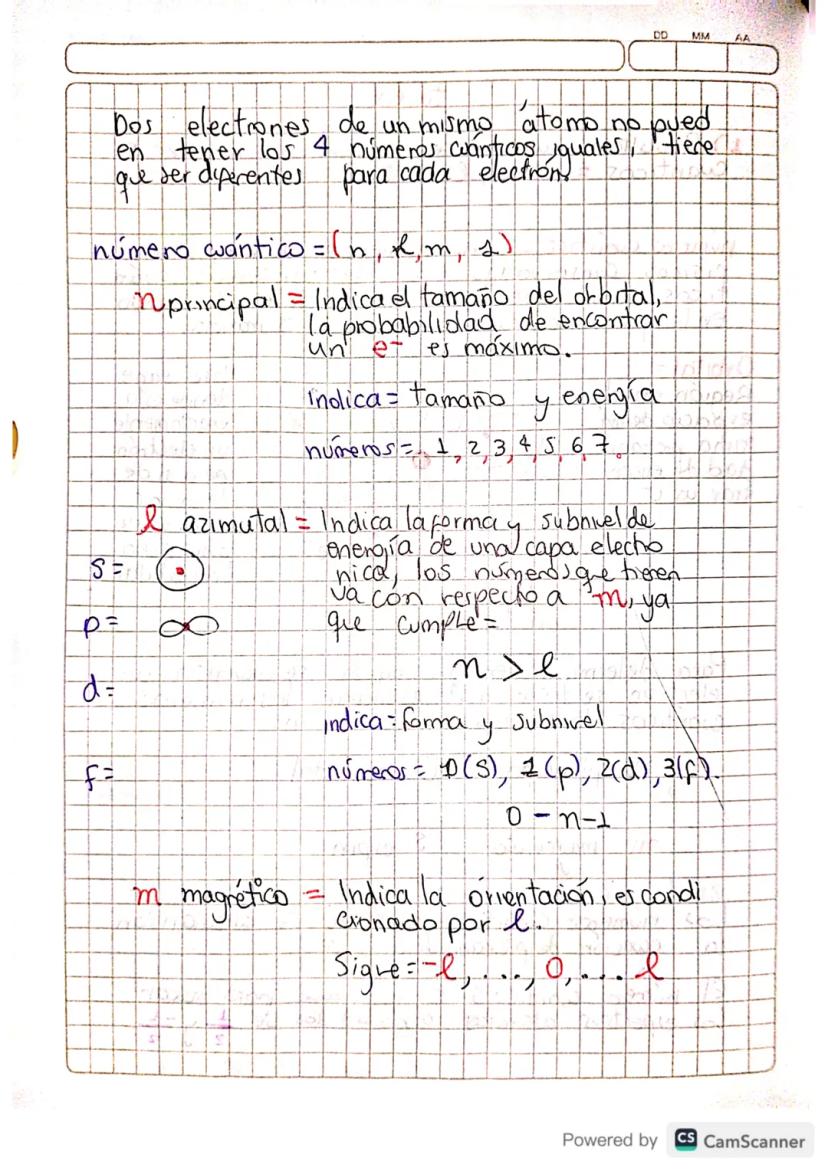 DD MM AA
Dos electrones de un mismo átomo no pued
en tener los 4 números cuánticos iguales, tiene
que ser diferentes para cada electrón
número cuántico = (n, l, m, s)
n principal = Indica el tamaño del orbital,
la probabilidad de encontrar
un e- es máximo.
indica = tamaño y energía
números = 1, 2, 3, 4, 5, 6, 7.
l azimutal = Indica la forma y subnivel de
energía de una capa electró
nica, los números que tienen
va con respecto a m, ya
que cumple =
s =
p =
n > l
d =
indica = forma y subnivel
f =
números = 0(s), 1(p), 2(d), 3(f).
0 - n-1
m magnético = Indica la orientación, es condi
cionado por l.
Sigue = -l, ..., 0, ... l
Powered by CS CamScanner